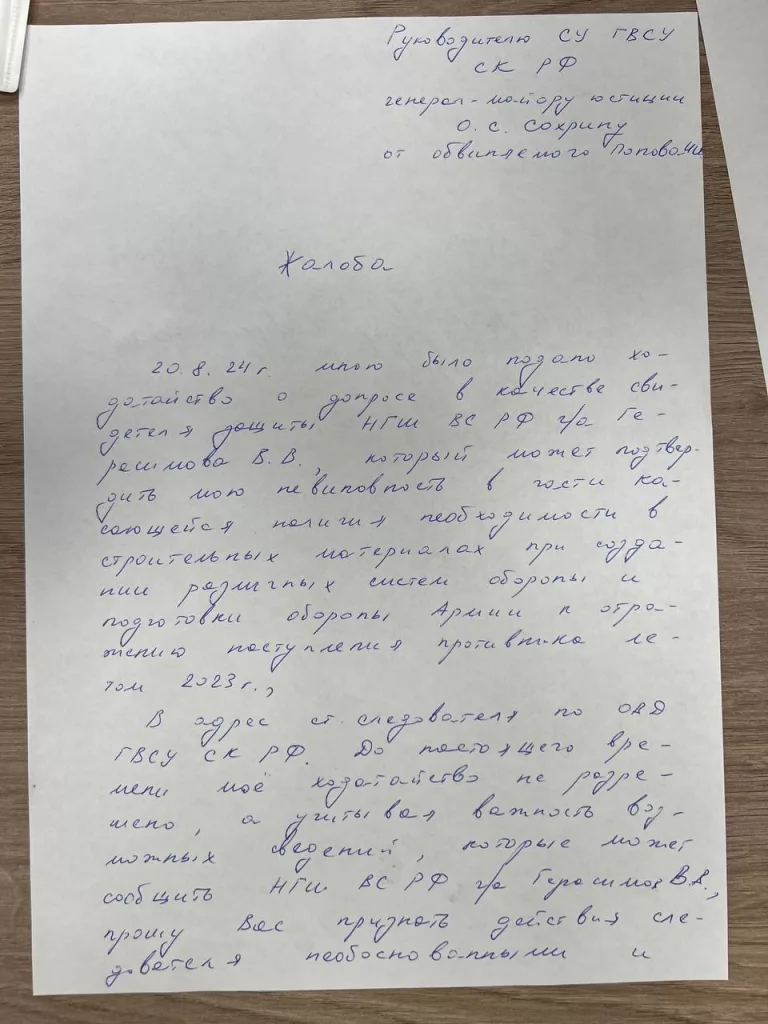 Руководителю СУ ГВСУ
СК РФ
генерал-майору юстиции
О. С. Сохрипу
от обвиняемого Попова И.И.
Жалоба
20. 8. 24 г. мною было подано хо-
датайство о допросе в качестве сви-
детеля защиты НГШ ВС РФ г/а Ге-
расимова В. В., который может подтвер-
дить мою невиновность в части ка-
сающейся наличия необходимости в
строительных материалах при созда-
нии различных систем обороны и
подготовки обороны Армии к отра-
жению наступления противника ле-
том 2023 г.,
В адрес ст. следователя по ОВД
ГВСУ СК РФ. До настоящего вре-
мени моё ходатайство не разре-
шено, а учитывая важность воз-
можных сведений, которые может
сообщить НГШ ВС РФ г/а Герасимов В.В.,
прошу Вас признать действия сле-
дователя необоснованными и